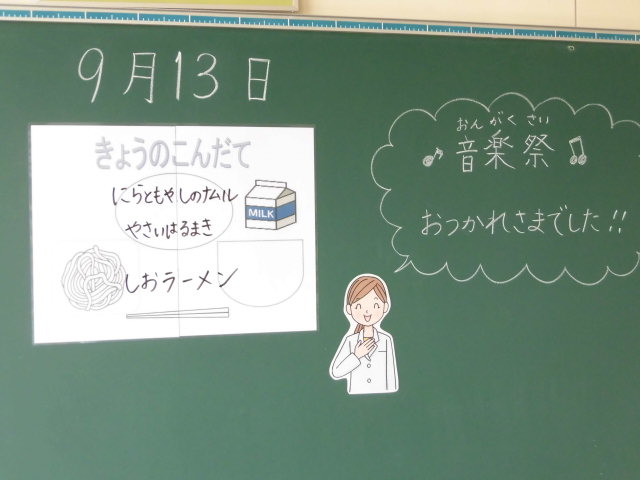 9月13日
きょうのこんだて
にらともやしのナムル
MILK
やさいはるまき
しおラーメン
おんがくさい
♪音楽祭♫
おつかれさまでした!!